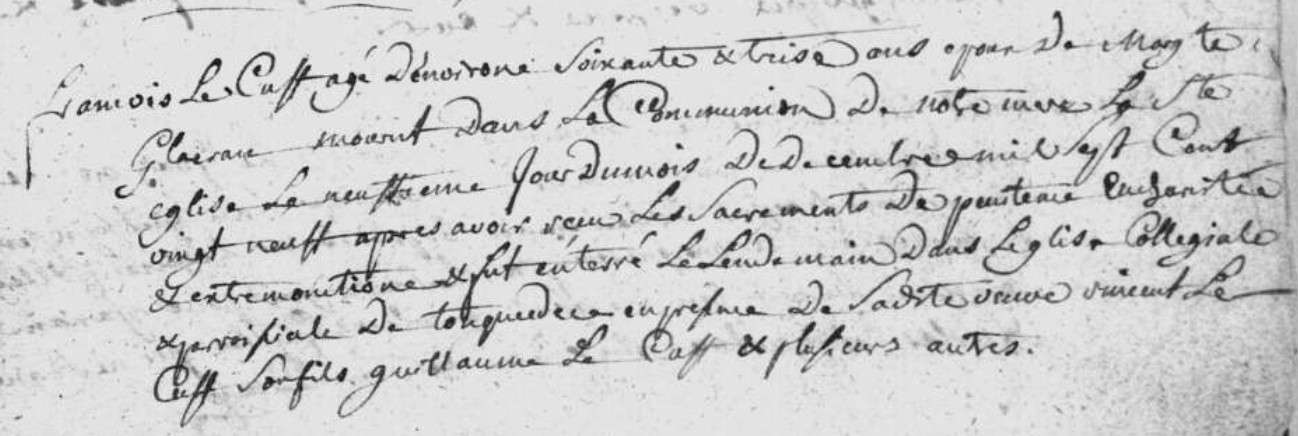 francois Le Cuff agé dénvirone Soixante & treise ans epoux De Marg te
mourut Dans La Communion De notre mere La Ste
eglise Le neuffieme Jour Dumois De Decembre mil Sept Cent
vingt neuff apres avoir receu Les Sacrements De penitence Eucharistie
& extremonctione & fut énterré Le Lendemain Dans Leglise Collegiale
& parroissiale De tonquedec en presence De Sadste veuve vincent Le
Cuff Son fils guillaume Le Cuff & plusieurs autres.